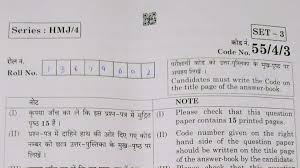 SET – 3
Series : HMJ/4
कोड नं.
Code No. 55/4/3
रोल नं.
Roll No. 1 3 6 7 9 6 0 2
परीक्षार्थी कोड को उत्तर-पुस्तिका के मुख-पृष्ठ पर अवश्य लिखें ।
Candidates must write the Code on the title page of the answer-book.
नोट
(I) कृपया जाँच कर लें कि इस प्रश्न-पत्र में मुद्रित पृष्ठ 15 हैं ।
(II) प्रश्न-पत्र में दाहिने हाथ की ओर दिए गए कोड नम्बर को छात्र उत्तर-पुस्तिका के मुख-पृष्ठ पर
NOTE
(I) Please check that this question paper contains 15 printed pages.
(II) Code number given on the right hand side of the question paper should be written on the title page of the answer-book by the